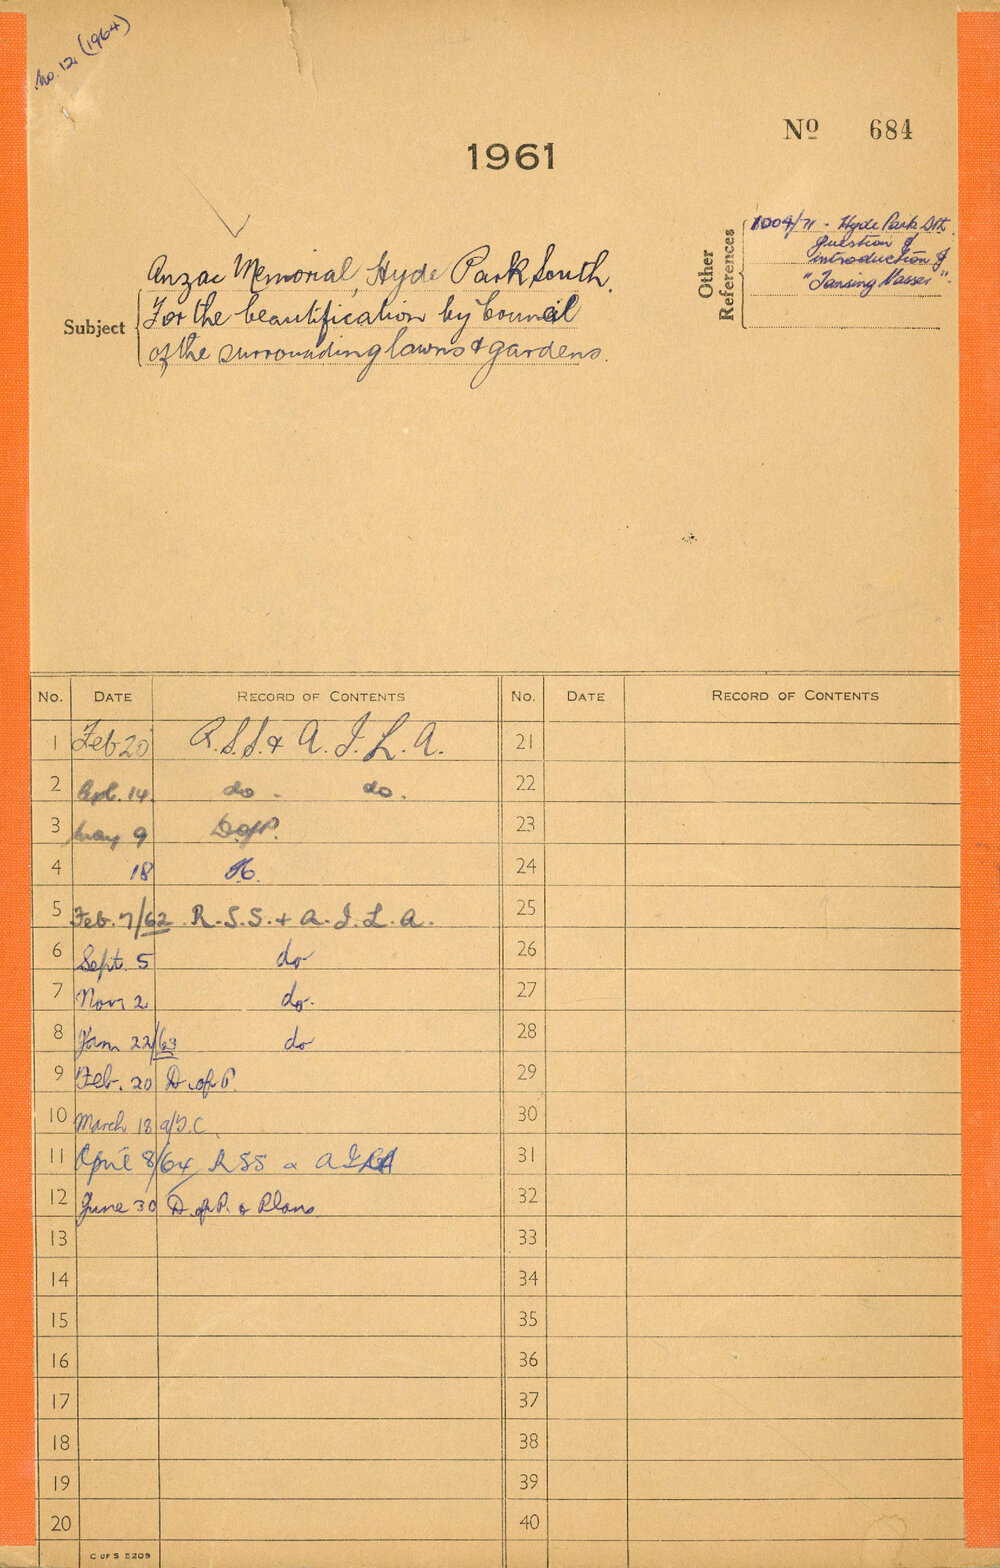 No. 12. (1964)
Nº 684
1961
Other References
1004/71 - Hyde Park Sth.
question of
introduction of
"Tansing Masses".
Subject
Anzac Memorial, Hyde Park South.
For the beautification by Council
of the surrounding lawns & gardens.
No. DATE RECORD OF CONTENTS No. DATE RECORD OF CONTENTS
1 Feb 20 R.S.S. & A.I.L.A. 21
2 14. do. do. 22
3 May 9 D of P. 23
4 18 24
5 Feb. 7/62 R.S.S. & A.I.L.A. 25
6 Sept. 5 do 26
7 Nov. 2 do. 27
8 Jan 22/63 do 28
9 Feb. 20 D. of P. 29
10 March 18 30
11 April 8/64 RSS & AILA 31
12 June 30 D. of P. & Plans 32
13 33
14 34
15 35
16 36
17 37
18 38
19 39
20 40
C OF S 5209